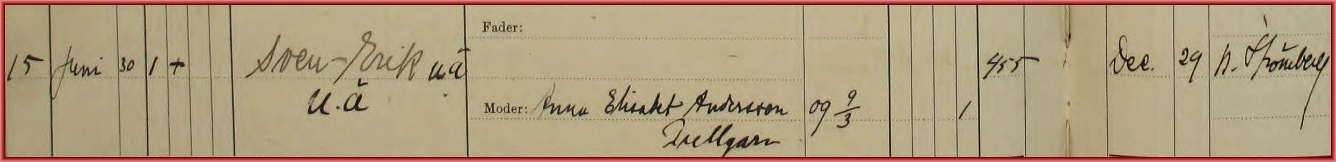 Fader:
15 Juni 30 1 + Sven-Erik u.ä 455 Dec. 29 N. Strömberg
u.ä Moder: Anna Elisabet Andersson 09 9/3 1
Tullgarn